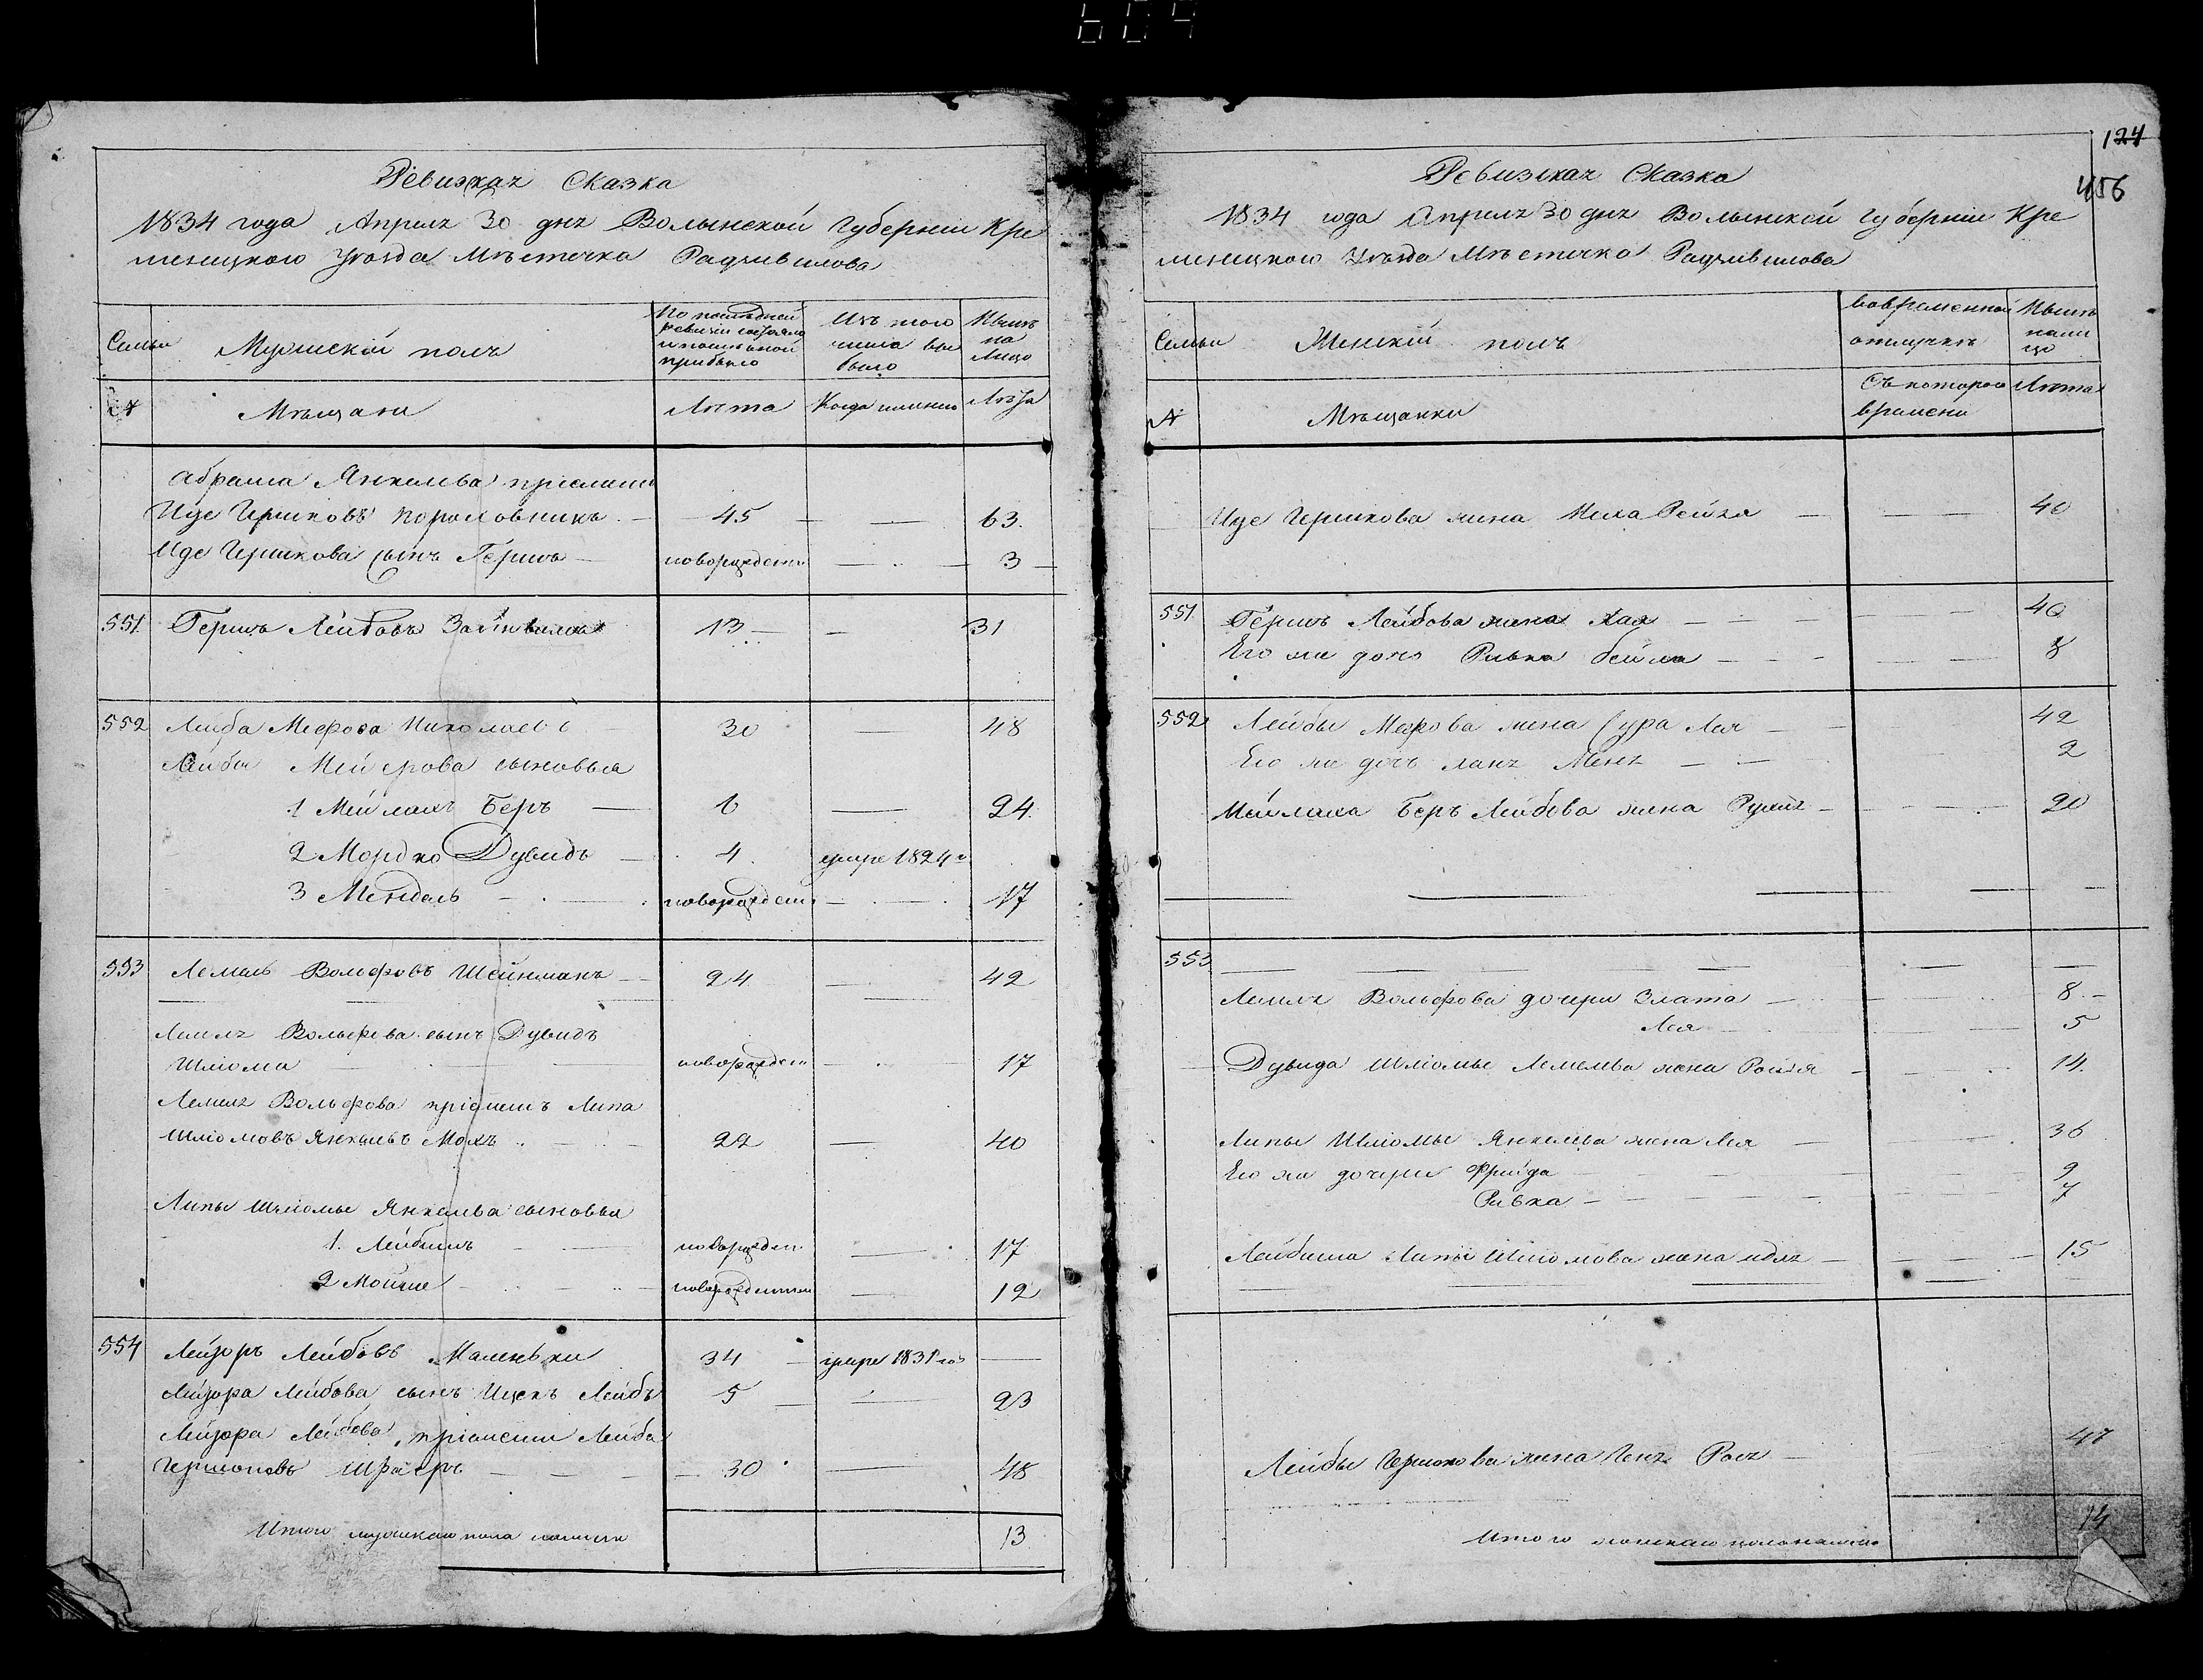 604
Ревизкая Сказка
1834 года Апреля 30 дня Волынской Губернии Кре
менецкого уезда Мъстечка Радзивилова
Семьи
Мужеский полъ
По последней ревизии состояло и после оной прибыло
Изъ того числа выбыло
Ныне на Лицо
№
Мъщани
Лъта
Когда имянно
Лъта
Абрама Янкелева приемыш
Иде Гершковъ 45 63.
Иде Гершкова сынъ Гершъ новорожден 3
551 Гершъ Лейбовъ 13 31
552 Лейба Меерова 30 48
Лейбы Мейерова сыновья
1 Мейлахъ Беръ 6 24
2 Мордко Дувидъ 4 умре 1824 г
3 Мендель новорожден 17
553 Лемель Вольфовъ Шейнманъ 24 42
Лемеля Вольфова сынъ Дувидъ
Шлiома новорожден 17
Лемеля Вольфова прiемышъ Липа
Шлiомовъ Янкелевъ 22 40
Липы Шлiомы Янкелева сыновья
1. Лейбишъ новорожден 17
2 Мойше новорожденный 12
554 Лейзоръ Лейбовъ Маленьки 34 умре 1831 го
Лейзора Лейбова сынъ Ицекъ Лейбъ 5 23
Лейзора Лейбова прiемыш Лейба
Гершоновъ 30 48
Итого мужеского пола налицо 13
124
456
Ревизкая Сказка
1834 года Апреля 30 дня Волынской Губернии Кре
менецкого Уезда Мъстечка Радзивилова
Семьи
Женскiй полъ
Вовременной отлучке
Ныне нали цо
№
Мъщанки
Съ которого времени
Лъта
Иде Гершкова жена 40
551 Гершъ Лейбова жена Хая 40
Его же дочь Ривка Бейла 8
552 Лейбы Меерова жена Сура Лея 42
Его же дочь 2
Мейлаха Беръ Лейбова жена 20
553
Лемеля Вольфова дочери Злата 8
Лея 5
Дувида Шлiомы Лемелева жена 14
Липы Шлiомы Янкелева жена Лея 36
Его же дочери Фрейда 9
Ривка 7
Лейбиша Липы Шлiомова жена 15
Лейбы Гершонова жена 47
Итого женскаго пола налицо 14